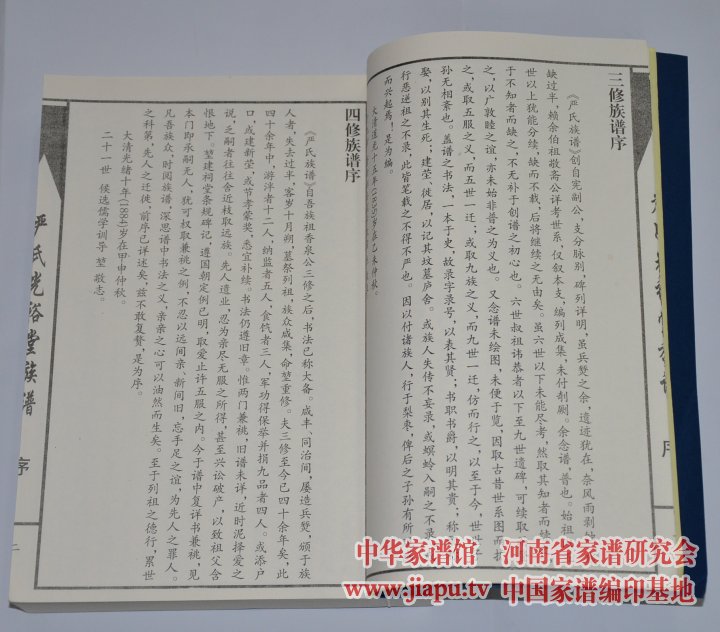 三修族谱序
《严氏族谱》创自宪副公，支分脉别，碑列详明，虽兵燹之余，遗迹犹在，奈风雨剥
缺过半，赖余伯祖敬斋公详考世系，仅叙本支，编列成集，未付剞劂。余念谱，普也。始祖
世以上犹能分续，缺而不载，后将继续之无由矣。虽六世以下未能尽考，然取其知者而
于不知者而缺之，不无补于创谱之初心也。六世叔祖讳恭者以下至九世遗碑，可续取
之，以广敦睦之谊，亦未始非普之为义也。又念谱未绘图，未便于览，因取古昔世系图而
之，或取五服之义，而五世一迁；或取九族之义，而九世一迁，仿而行之，以至于今，世世
孙无相紊也。盖谱之书法，一本于史，故录字录号，以表其贤；书职书爵，以明其贵；称
娶，以别其生死；建茔、徙居，以记其坟墓庐舍。或族人失传不妄录，或螟蛉入嗣之不录
行恶逆祖之不录，此皆笔载之不得不严也。因以付诸族人，行于梨枣，俾后之子孙有所
而兴起焉！是为编。
大清道光十五年(1835)岁在乙未仲秋。
四修族谱序
《严氏族谱》自吾族祖香泉公三修之后，书法已称大备。咸丰、同治间，屡造兵燹，颁于族
人者，失去过半，客岁十月朔，墓祭列祖，族众咸集，命堃重修。夫三修至今已四十余年矣，此
四十余年中，游泮者十二人，纳监者五人，食饩者三人，军功得保举并捐九品者四人。或添户
口，或建新茔，或节孝蒙奖，悉宜补续。书法仍遵旧章。惟两门兼祧，旧谱未详，近时泥择爱之
说，乏嗣者往往舍近枝取远族。先人遗业，忍为亲尽无服之所得，甚至兴讼破产，以致祖父含
恨地下。堃建祠堂条规碑记，遵国朝定例已明，取爱止许五服之内。今于谱中复详书兼祧，见
本门即承嗣无人，犹可权取兼祧之例，不忍以远间亲、新间旧，忘手足之谊，为先人之罪人。
凡吾族众，时阅族谱，深思谱中书法之义，亲亲之心可以油然而生矣。至于列祖之德行，累世
之科第，先人之迁徙，前序已详述矣，兹不敢复赘，是为序。
大清光绪十年(1884)岁在甲申仲秋。
二十一世 候选儒学训导 堃 敬志。
严氏光裕堂族谱
序
中华家谱馆 河南省家谱研究会
www.jiapu.tv 中国家谱编印基地